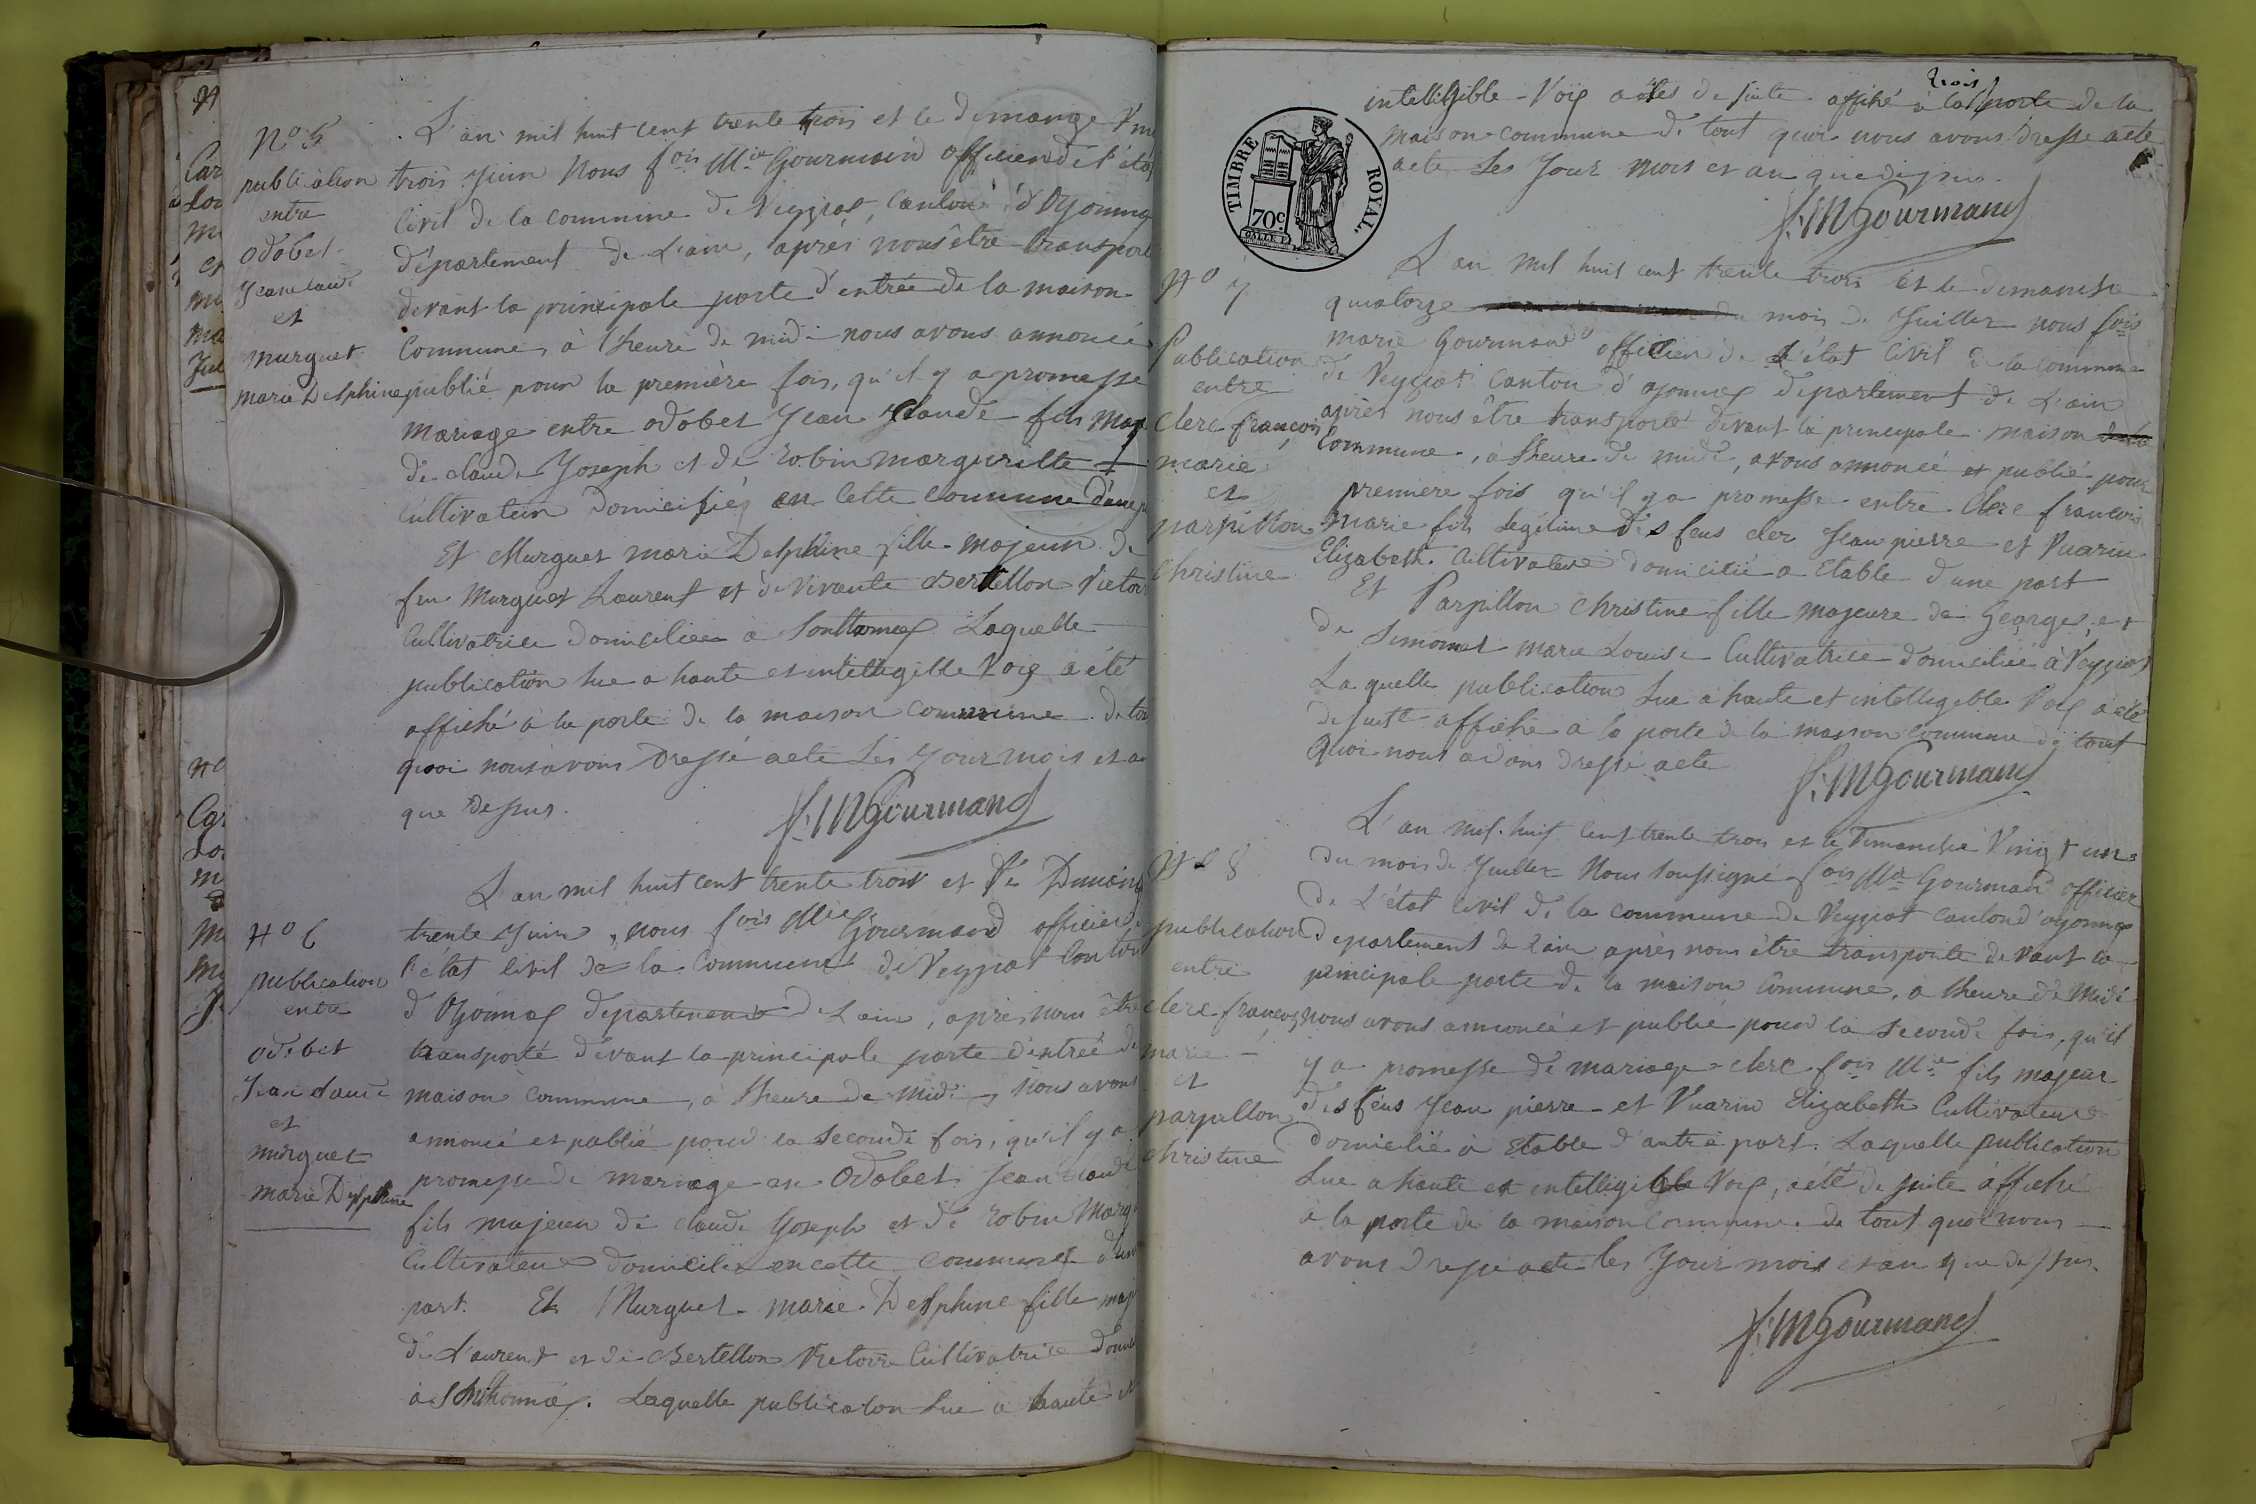 N° 5
publication
entre
odobet
Jean Claude
et
murguet
marie Delphine
L'an mil huit cent trente trois et le dimange
trois Juin Nous fois Mie Gourmand officier de l'état
Civil de la commune de Veyziat, Canton d'Oyonnax
département de L'ain, après nous être transporté
devant la principale porte d'entrée de la maison
Commune, à l'heure de midi nous avons annoncé
publié pour la première fois, qu'il y a promesse
mariage entre odobet Jean Claude fils maj
de claude Joseph et de robin marguerite
Cultivateur domicilié en cette commune d'une p
Et Murguet marie Delphine fille majeur de
feu Murguet Laurent et de vivante Bertellon Victoir
Cultivatrice domiciliée à Sonthonnax Laquelle
publication lue a haute et intelligible Voix a été
affiché à la porte de la maison commune de tou
quoi nous avons Dressé acte Les Jour mois et a
que dessus.
f. M Gourmand
N° 6
publication
entre
odobet
Jean claude
et
murguet
marie Delphine
L'an mil huit cent trente trois et le Dimang
trente Juin, nous fois Mie Gourmand officier d
l'état civil de la commune de Veyziat Canton
d'Oyonnax departement de Lain, après nous être
transporté devant la principale porte d'entreé de
maison commune, à l'heure de Midi, nous avons
annoncé et publié pour la seconde fois, qu'il y a
promesse de mariage en Odobet Jean Claude
fils majeur de claude Joseph et de robin Marg
Cultivateur domicilié en cette commune d'une
part. Et Murguet marie Delphine fille maj
de Laurent et de Bertellon Victoire Cultivatrice
à Sonthonnax. Laquelle publication lue a haute et
intelligible Voix a étés de suite affiché à la trois porte de la
maison commune de tout quoi nous avons dressé acte
acte Les Jour mois et an que dessus
f. M Gourmand
TIMBRE ROYAL.
70c
N° 7
Publication
entre
Clerc françois
marie
et
parpillon
Christine
L'an mil huit cent trente trois et le dimanche
quatorze du mois de Juillet nous fois
marie Gourmand officier de l'état Civil de la commune
de Veyziat Canton d'oyonnax departement de L'ain
après nous être transporté devant la principale maison
Commune, à l'heure de midi, avons annoncé et publié pour
première fois qu'il y a promesse entre Clerc francois
marie fils Legitime des feus clerc Jean pierre et Vuarin
Elizabeth Cultivateur domicilié a Etable d'une part
Et Parpillon Christine fille majeure de Georges et
de Simonet marie Louise Cultivatrice domiciliée à Veyziat
La quelle publication Lue a haute et intelligible Voix a été
de suite affiché a la porte de la maison commune de tout
quoi nous avons dressé acte
f. M Gourmand
N° 8
publication
entre
clerc françois
marie
et
parpillon
christine
L'an mil huit cent trente trois et le Dimanche Vingt un
du mois de Juillet Nous soussigné fois Mie Gourmand officier
de L'état civil de la commune de Veyziat canton d'oyonnax
departement de lain après nous être transporté devant la
principale porte de la maison Commune, a l'heure de Midi
nous avons annoncé et publié pour la seconde fois, qu'il
y a promesse de mariage clerc fois Mie fils majeur
des feus Jean pierre et Vuarin Elizabeth Cultivateur
domicilié à Etable d'autre part. Laquelle publication
Lue a haute et intelligible Voix, a été de suite affiché
à la porte de la maison commune de tout quoi nous
avons dressé acte les Jour mois et an que dessus.
f. M Gourmand